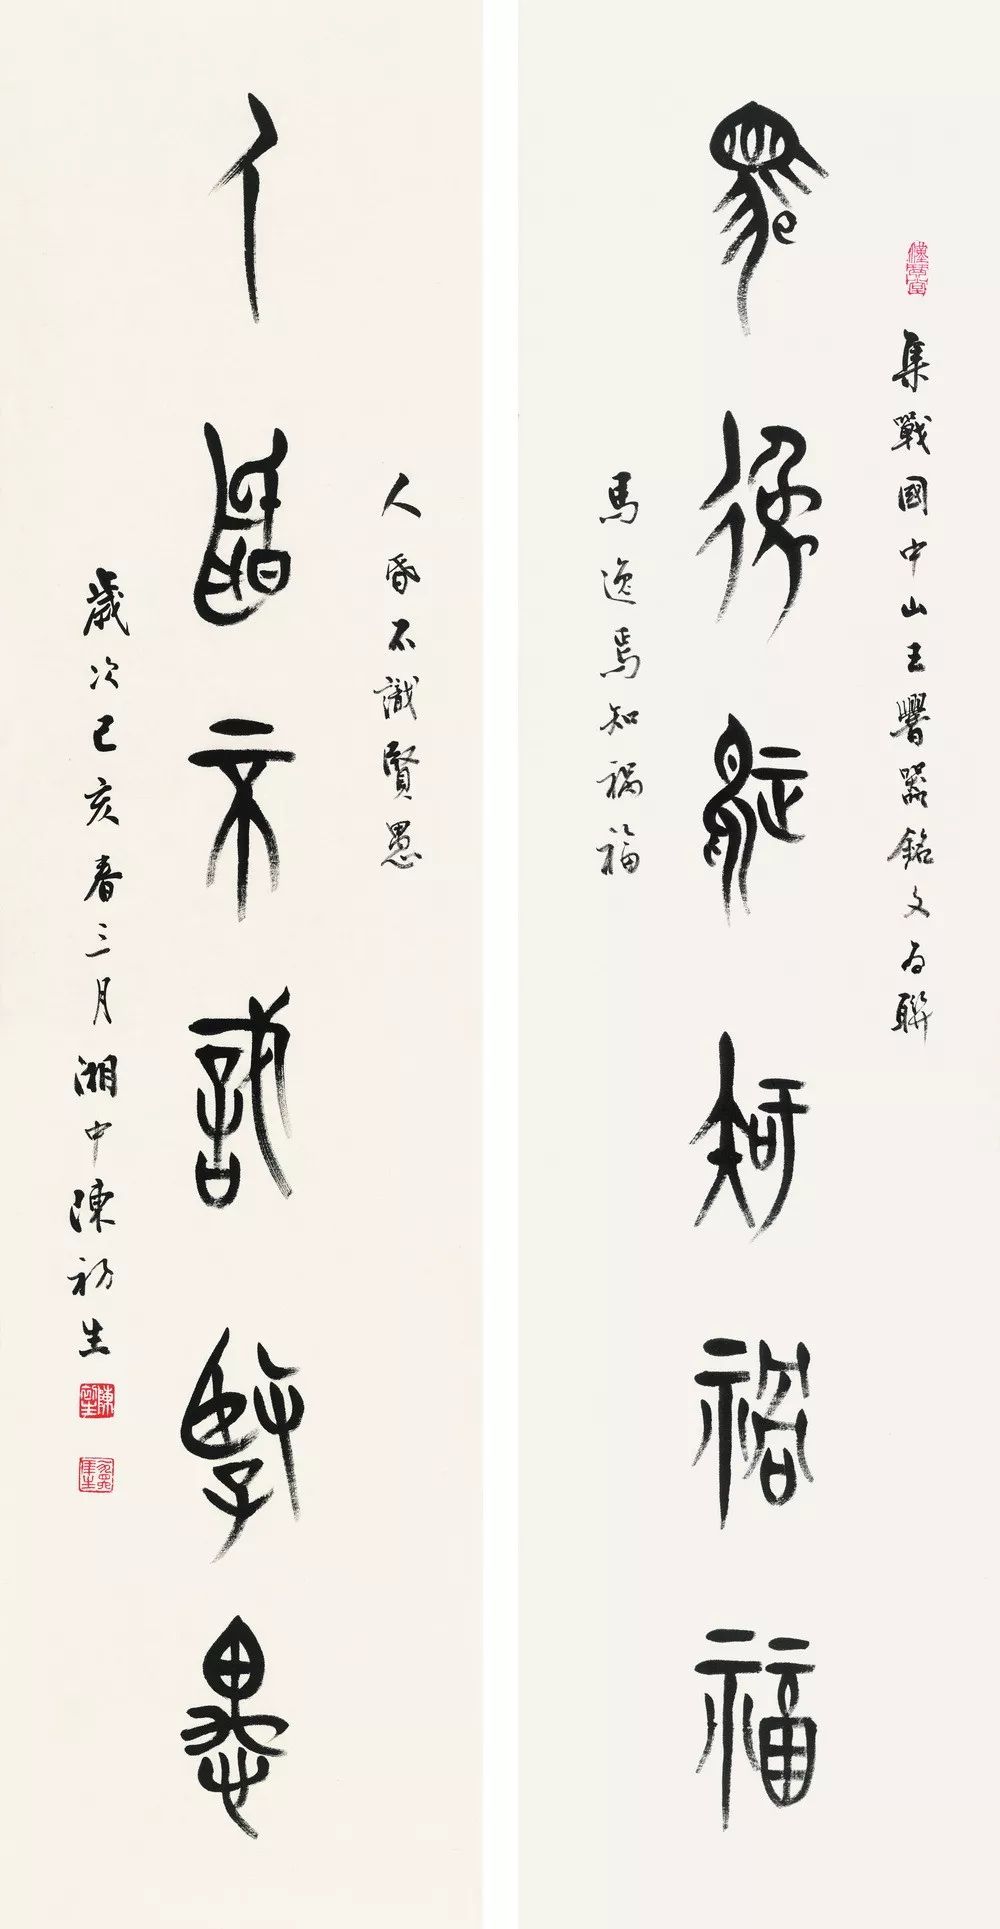 集戰國中山王器銘文為聯
馬逸焉知禍福
馬逸焉知禍福
人昏不識賢愚
人昏不識賢愚
歲次己亥春三月湘中陳初生
陳初生